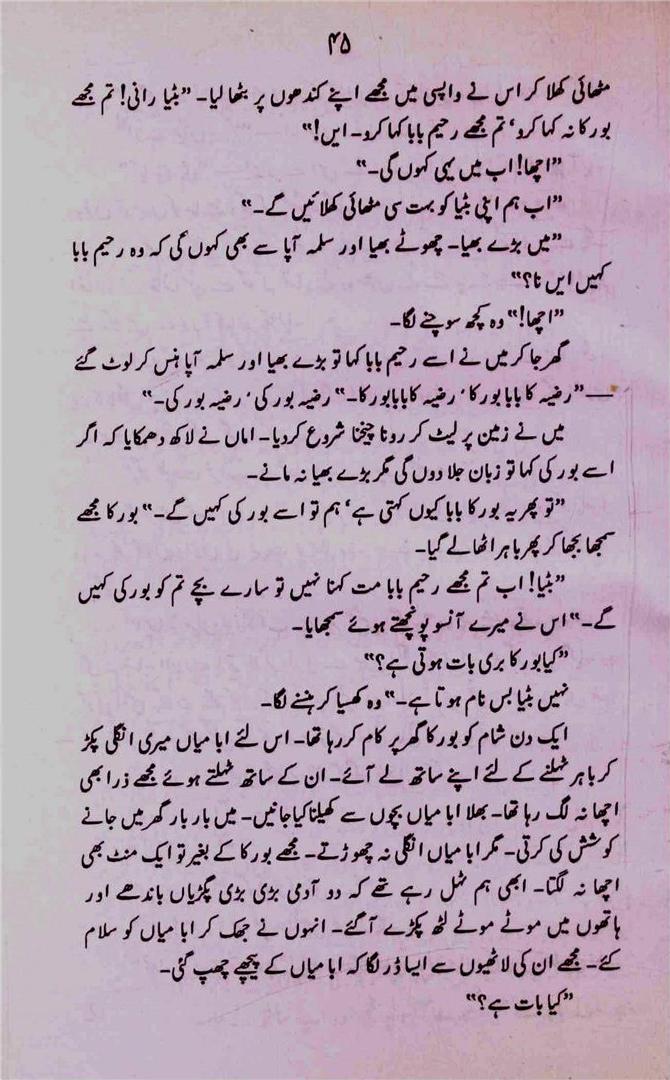 ۴۵
مٹھائی کھلا کر اس نے واپسی میں مجھے اپنے کندھوں پر بٹھا لیا۔ "بٹیا رانی! تم مجھے
بورکا نہ کہا کرو، تم مجھے رحیم بابا کہا کرو۔ ایں!"
"اچھا! اب میں یہی کہوں گی۔"
"اب ہم اپنی بٹیا کو بہت سی مٹھائی کھلائیں گے۔"
"میں بڑے بھیا۔ چھوٹے بھیا اور سلمہ آپا سے بھی کہوں گی کہ وہ رحیم بابا
کہیں ایں نا؟"
"اچھا!" وہ کچھ سوچنے لگا۔
گھر جا کر میں نے اسے رحیم بابا کہا تو بڑے بھیا اور سلمہ آپا ہنس کر لوٹ گئے
— "رضیہ کا بابا بورکا، رضیہ کا بابا بورکا۔" رضیہ بور کی، رضیہ بور کی۔"
میں نے زمین پر لیٹ کر رونا چیخنا شروع کردیا۔ اماں نے لاکھ دھمکایا کہ اگر
اسے بور کی کہا تو زبان جلا دوں گی مگر بڑے بھیا نہ مانے۔
"تو پھر یہ بورکا بابا کیوں کہتی ہے، ہم تو اسے بور کی کہیں گے۔" بورکا مجھے
سمجھا بجھا کر پھر باہر اٹھا لے گیا۔
"بٹیا! اب تم مجھے رحیم بابا مت کہنا نہیں تو سارے بچے تم کو بورکی کہیں
گے۔" اس نے میرے آنسو پونچھتے ہوئے سمجھایا۔
"کیا بورکا بری بات ہوتی ہے؟"
نہیں بٹیا بس نام ہوتا ہے۔" وہ کھسیا کر ہنسنے لگا۔
ایک دن شام کو بورکا گھر پر کام کررہا تھا۔ اس لئے ابا میاں میری انگلی پکڑ
کر باہر ٹہلنے کے لئے اپنے ساتھ لے آئے۔ ان کے ساتھ ٹہلتے ہوئے مجھے ذرا بھی
اچھا نہ لگ رہا تھا۔ بھلا ابا میاں بچوں سے کھیلنا کیا جانیں۔ میں بار بار گھر میں جانے
کوشش کی کرتی۔ مگر ابا میاں انگلی نہ چھوڑتے۔ مجھے بورکا کے بغیر تو ایک منٹ بھی
اچھا نہ لگتا۔ ابھی ہم ٹہل رہے تھے کہ دو آدمی بڑی بڑی پگڑیاں باندھے اور
ہاتھوں میں موٹے موٹے لٹھ پکڑے آگئے۔ انہوں نے جھک کر ابا میاں کو سلام
کئے۔ مجھے ان کی لاٹھیوں سے ایسا ڈر لگا کہ ابا میاں کے پیچھے چھپ گئی۔
"کیا بات ہے؟"